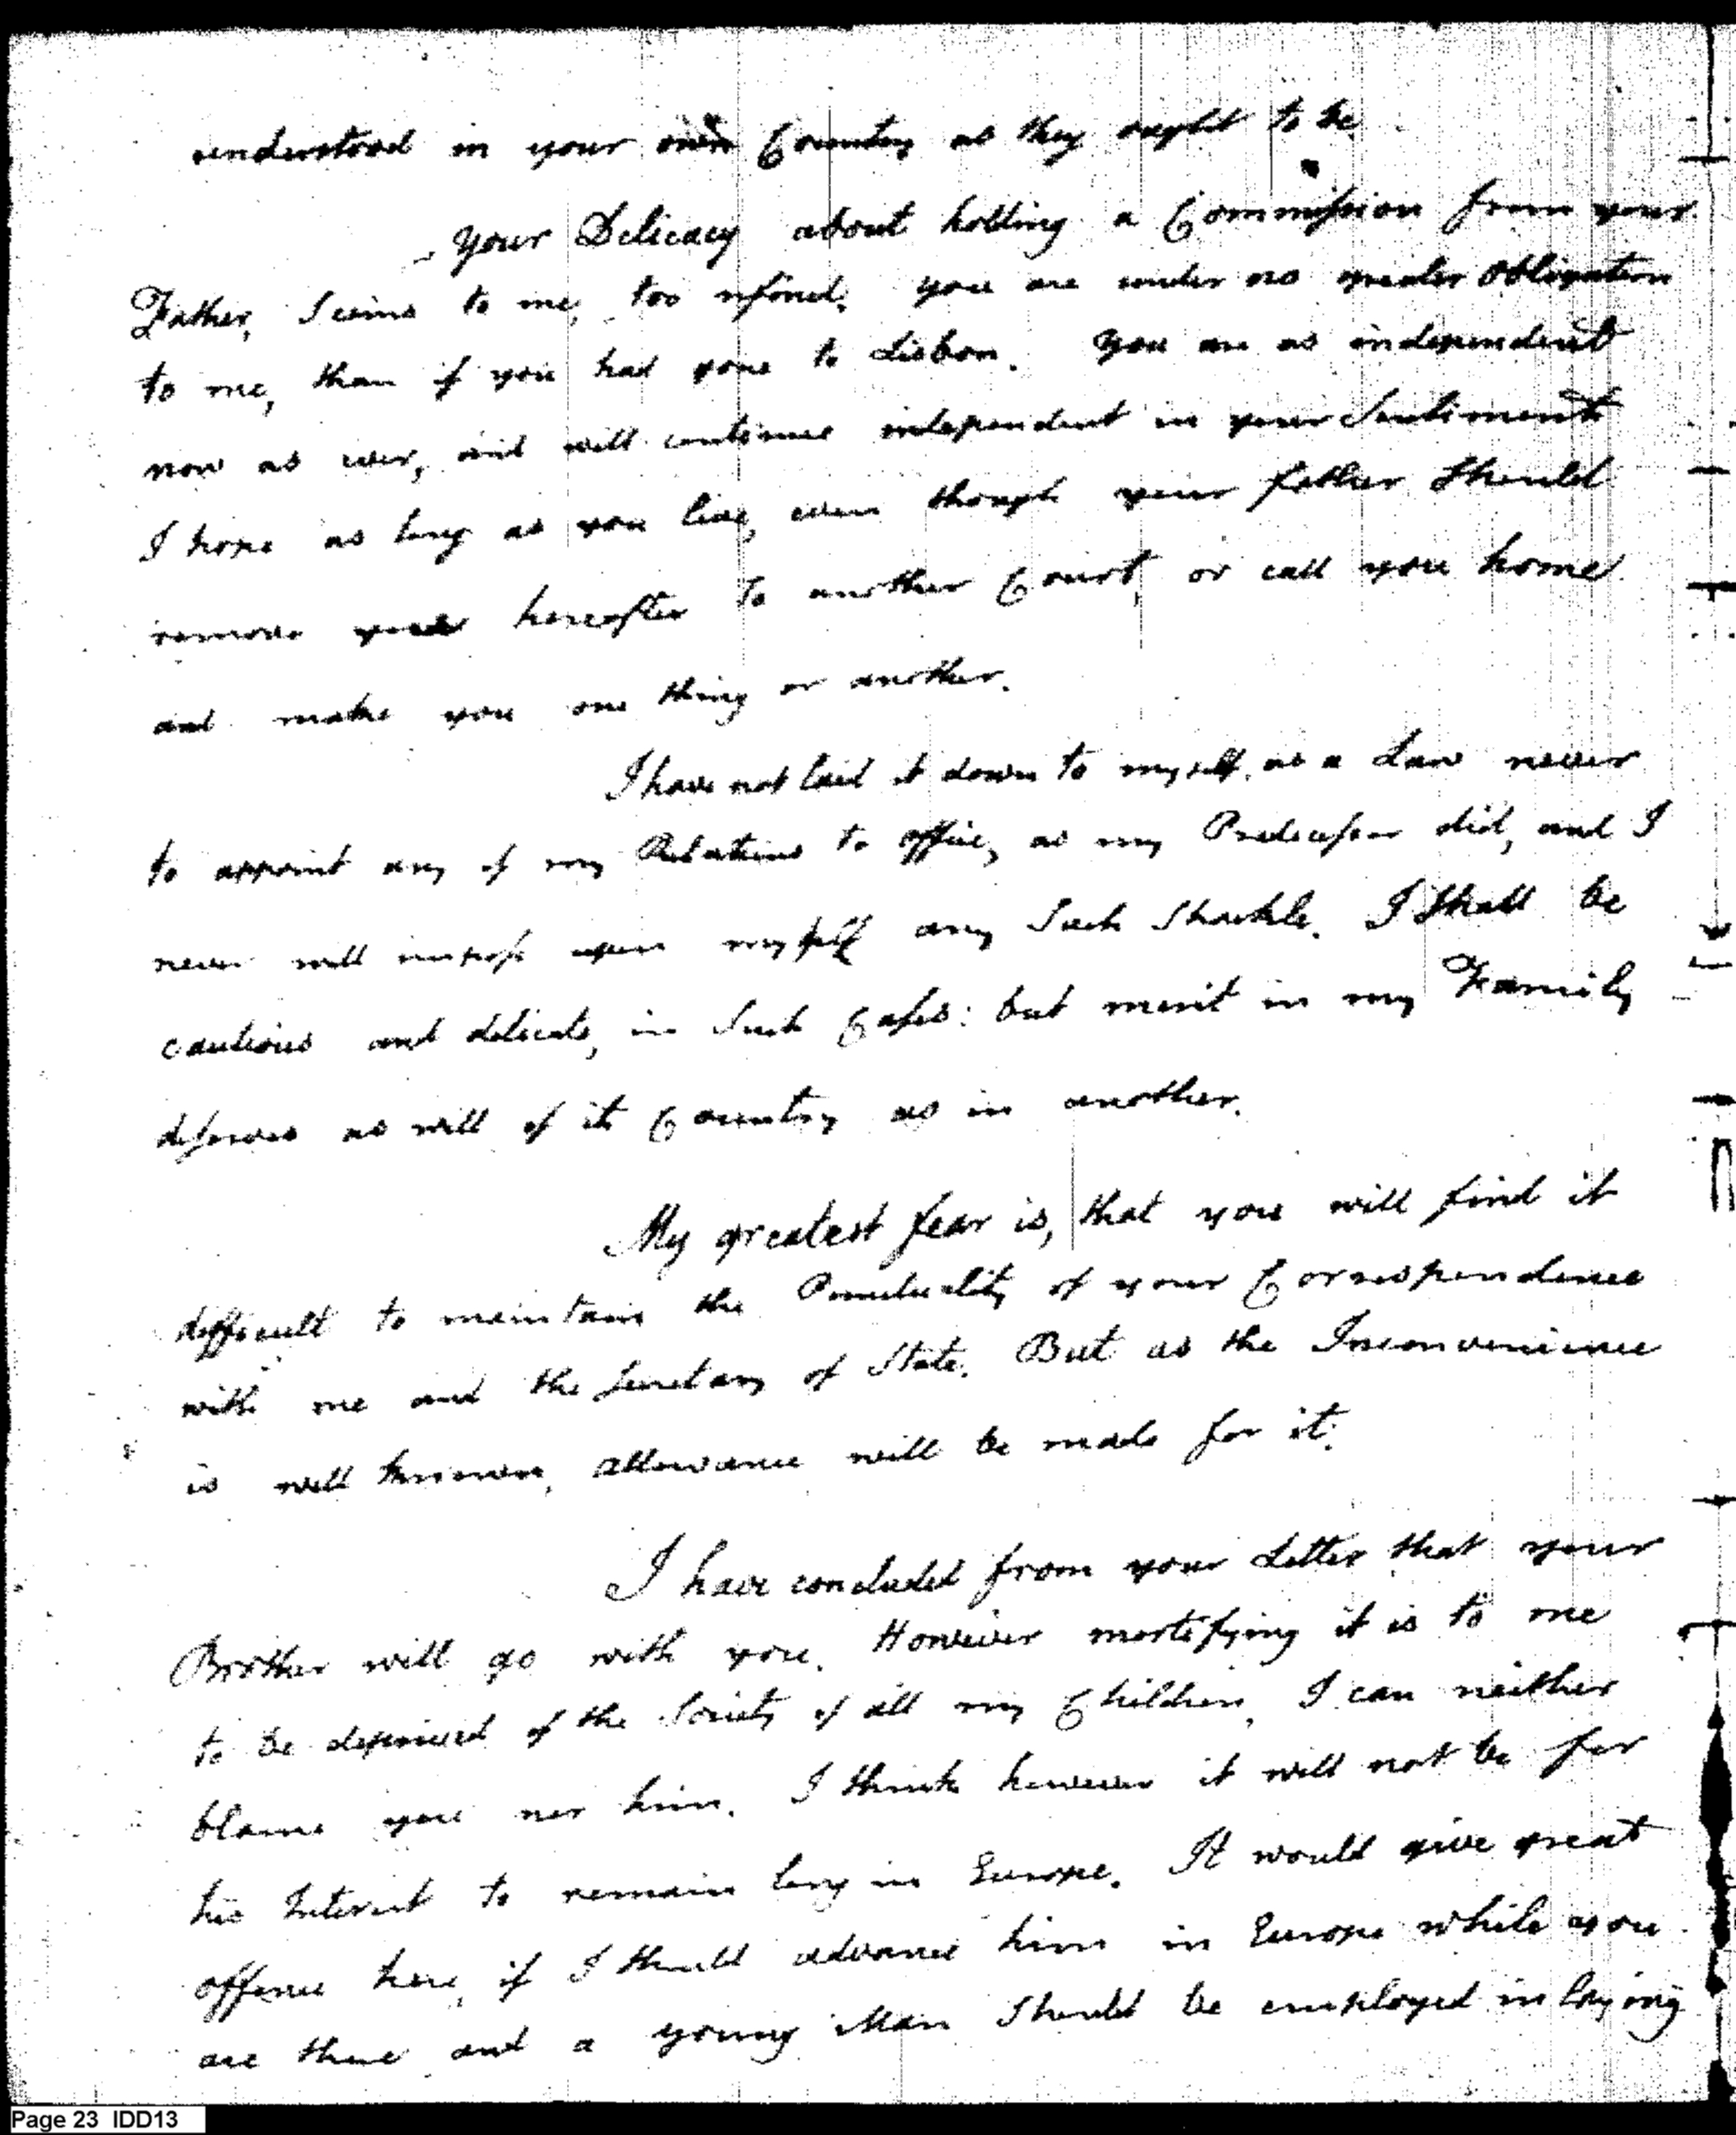 understood in your own Country as they ought to be
Your Delicacy about holding a Commission from your
Father, Seems to me, too refined. you are under no greater Obligation
to me, than if you had gone to Lisbon. You are as independent
now as ever, and will continue independent in your Sentiments
I hope as long as you live, even though your father Should
remove you hereafter to another Court, or call you home
and make you one thing or another.
I have not laid it down to myself, as a Law never
to appoint any of my Relations to office, as my Predecessor did, and I
never will impose upon myself any Such Shackle. I Shall be
cautious and delicate, in Such Cases: but merit in my Family
deserves as well of its Country as in another.
My greatest fear is, that you will find it
difficult to maintain the Punctuality of your Correspondence
with me and the Secretary of State. But as the Inconvenience
is well known, allowance will be made for it.
I have concluded from your Letter that your
Brother will go with you. However mortifying it is to me
to be deprived of the Society of all my Children, I can neither
blame you nor him. I think however it will not be for
his Interest to remain long in Europe. It would give great
offence here, if I should advance him in Europe while you
are there and a young Man Should be employed in laying
Page 23 IDD13